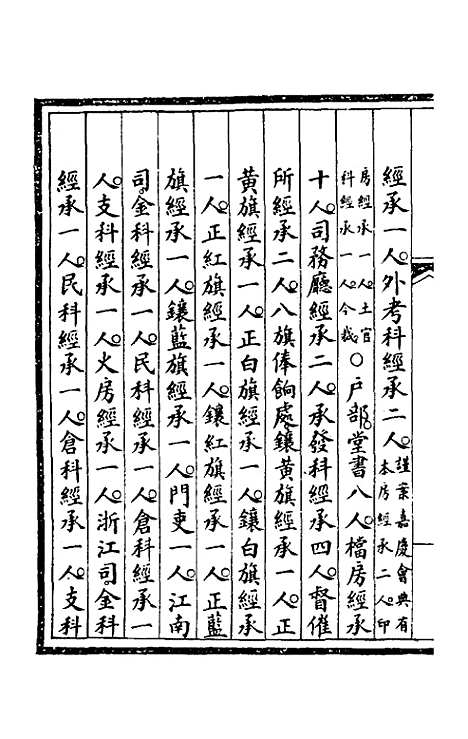 經承一人外考科經承二人謹案嘉慶會典有本房經承二人印
房經承一人土官科經承一人今裁○戶部堂書八人檔房經承
十人司務廳經承二人承發科經承四人督催
所經承二人八旗俸餉處鑲黃旗經承一人正
黃旗經承一人正白旗經承一人鑲白旗經承
一人正紅旗經承一人鑲紅旗經承一人正藍
旗經承一人鑲藍旗經承一人門吏一人江南
司金科經承一人民科經承一人倉科經承一
人支科經承一人火房經承一人浙江司金科
經承一人民科經承一人倉科經承一人支科